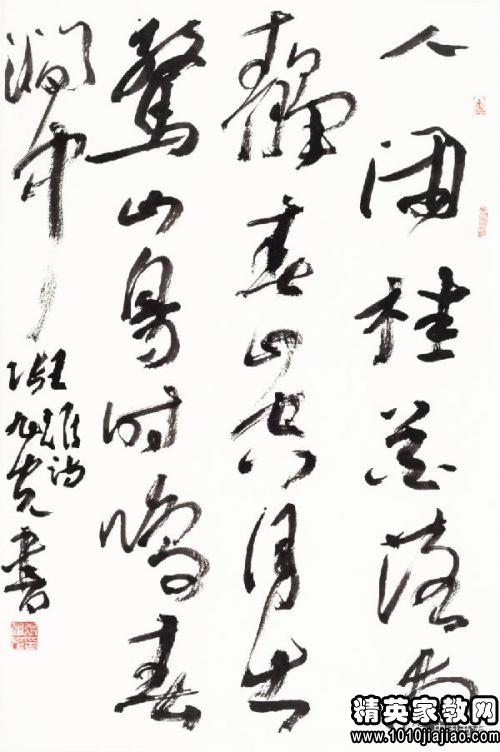 人闲桂花落夜
静春山空月出
驚山鸟时鸣春
涧中
王维诗
张旭光书
精英家教网
www.1010jiajiao.com